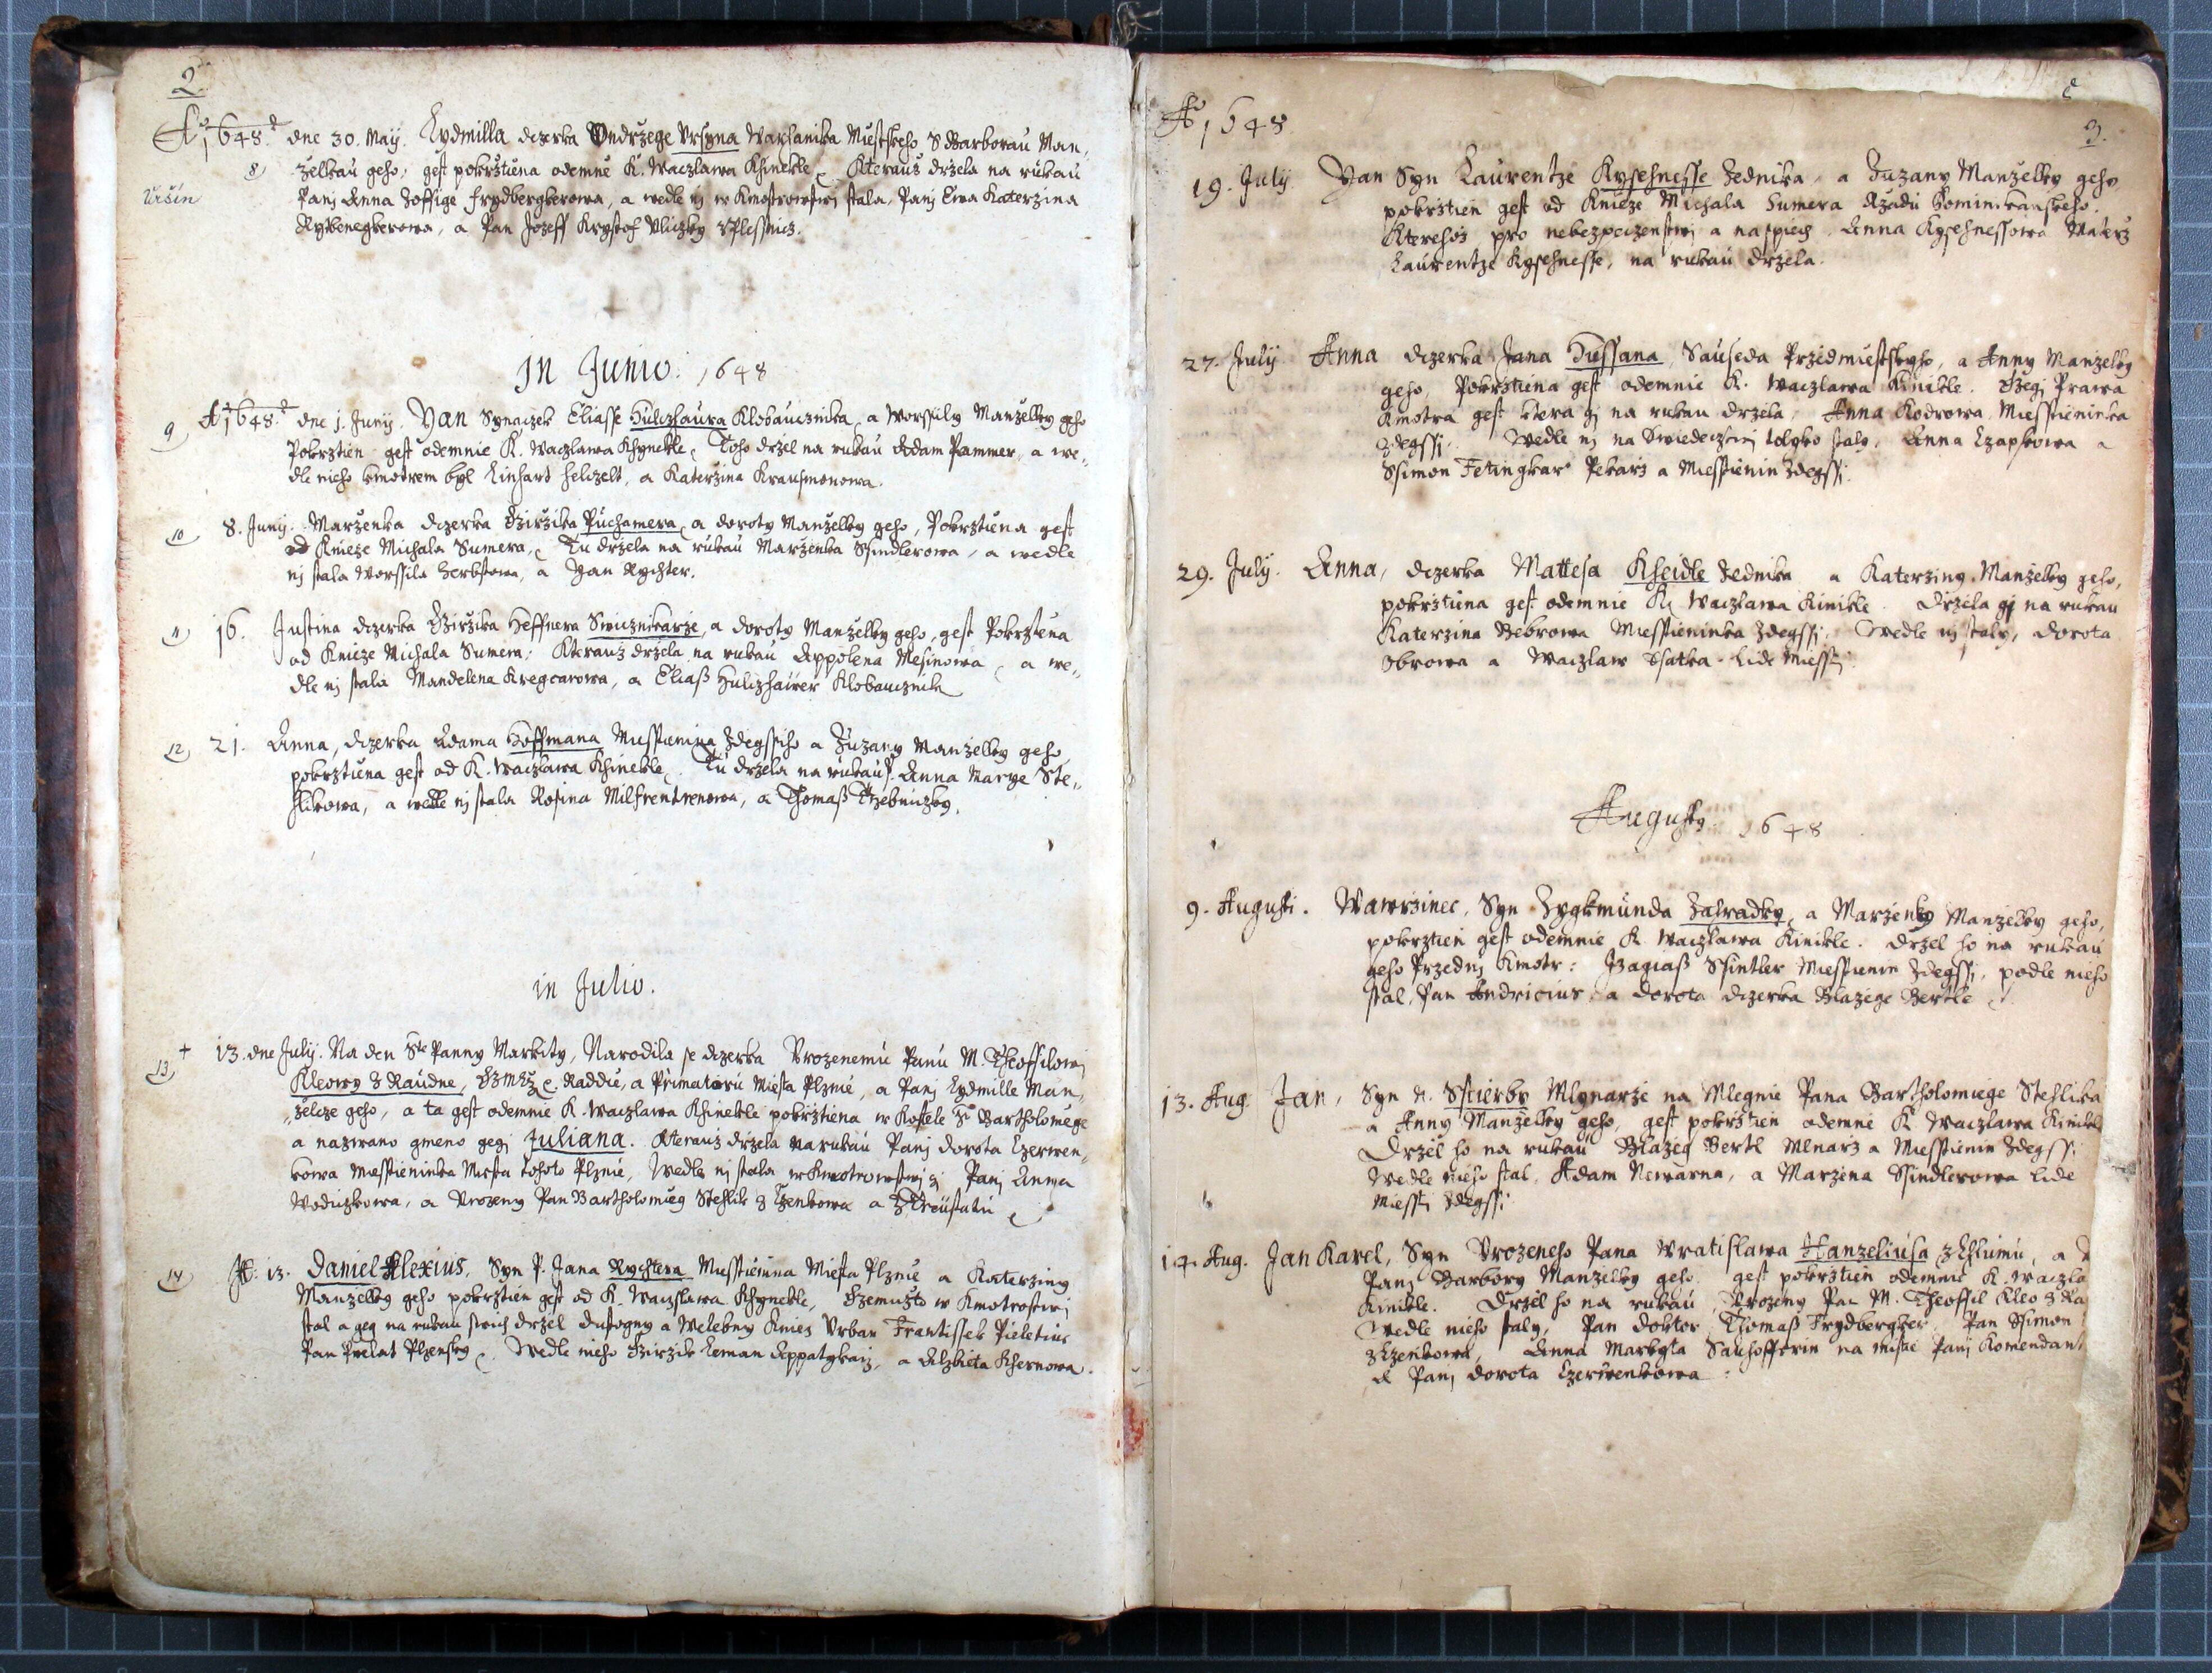 2.
Aº 1648. dne 30. Maij. Lydmilla dczerka Ondrzege Vrsyna Warhanika Miestskeho S Barborau Man,,
8 zelkau geho, gest pokrztiena odemne K. Waczlawa Khinekle, Kterauz drzela na rukau
Uršin
Panj Anna Zoffige Frydbergkerowa, a wedle nj w Kmotrowstwj stala, Panj Ewa Katerzina
Rytbenegkerowa, a Pan Jozeff Krystof Vliczky z Plessnicz.
In Junio. 1648
9 Aº 1648. dne 1. Junij. Yan Synaczek Eliasse Hulczhaura Klobaucznika, a Worssily Manzelky geho
Pokrztien gest odemnie K. Waczlawa Khynekle, Toho drzel na rukau Adam Pammer, a we,,
dle nieho kmotrem byl Linhart Helczelt, a Katerzina Krausmonowa.
10 8. Junij. Marzenka dczerka Girzika Puchamera, a doroty Manzelky geho, Pokrztiena gest
od Knieze Michala Sumera, Tu drzela na rukau Marzenka Ssindlerowa, a wedle
nj stala Worssila Herbstowa, a Jan Rychter.
11 16. Justina dczerka Girzika Heffnera Swicznikarze, a doroty Manzelky geho, gest Pokrztena
od Knieze Michala Sumera, Kterauz drzela na rukau Appolena Mesinowa, a we,,
dle nj stala Mandelena Kregcarowa, a Eliaß Hulczhaurer Klobaucznik
12 21. Anna, dczerka Adama Hoffmana Miesstienina Zdegssiho a Zuzany Manzelky geho
pokrztiena gest od K. Waczlawa Khinekle, Tu drzela na rukau P. Anna Marye Ste,,
hlikowa, a wedle nj stala Rosina Milfrentrenowa, a Thomaß Trzebniczky.
in Julio.
13 + 13. dne Julij. Na den Ste Panny Markity, Narodila se dczerka Vrozenemu Panu M. Theoffilowj
Kleowy z Raudne, Raddie, a Primatoru Miesta Plznie, a Panj Lydmille Man,,
,,zelcze geho, a ta gest odemnie K. Waczlawa Khinekle pokrztiena w Kostele Sº Bartholomiege
a nazwano gmeno gegj Juliana. Kterauz drzela na rukau Panj dorota Czerwen,,
kowa Miesstieninka Miesta tohoto Plznie, Wedle nj stala w Kmotrowstwj gj Panj Anna
Wodiczkowa, a Vrozeny Pan Bartholomieg Stehlik z Czenkowa a z Treustatu
14 13. Daniel Alexius, Syn P. Jana Rychtera Miesstienina Miesta Plznie a Katerziny
Manzelky geho pokrztien gest od K. Waczlawa Khynekle, Gemuzto w Kmotrostwj
stal a geg na rukau swich drzel dustogny a Welebny Kniez Vrban Frantissek Pieletius
Pan Prelat Plzensky. Wedle nieho Girzik Leman Appatykarz, a Alzbieta Khernowa.
3.
Aº 1648
19. Julij. Yan Syn Laurentze Kysehnesse Zednika, a Zuzany Manzelky geho
pokrztien gest od Knieze Michala Sumera Rzadu Dominikanskeho.
Kterehoz pro nebezpeczenstwj a naspiech, Anna Kysehnessowa Materz
Laurentze Kysehnesse, na rukau drzela.
27. Julij Anna dczerka Jana Hussana, Sauseda Przedmiestskyho, a Anny Manzelky
geho, Pokrztiena gest odemnie K. Waczlawa Kinekle. Gegj Prawa
Kmotra gest ktera gj na rukau drzela, Anna Kodrowa Miesstieninka
Zdegssj. Wedle nj na Swiedeczstwj tolyko staly, Anna Czapkowa a
Ssimon Fetingkar Pekarz a Miesstienin Zdegssj.
29. July. Anna, dczerka Mattesa Kheidle Zednika a Katerziny Manzelky geho,
pokrztiena gest odemnie K. Waczlawa Kinikle. Drzela gj na rukau
Katerzina Bebrowa Miesstieninka Zdegssj. Wedle nj staly, dorota
Obrowa a Waczlaw Ssatka Lide Miesstj.
Augusty 1648
9. Augusti. Wawrzinec, Syn Zygkmunda Zahradky, a Marzenky Manzelky geho,
pokrztien gest odemnie K. Waczlawa Kinikle. drzel ho na rukau
geho Przednj Kmotr: Zagiaß Ssintler Miesstienin Zdegssj, podle nieho
stal, Pan Andricius, a Dorota dczerka Blazege Bertle
13. Aug. Jan, Syn N. Sstierby Mlynarze na Mlegnie Pana Bartholomiege Stehlika
a Anny Manzelky geho, gest pokrztien odemne K Waczlawa Kinikle
Drzel ho na rukau Blazeg Bertl Mlnarz a Miesstienin Zdegssj
Wedle nieho stal, Adam Newarna, a Marzena Ssindlerowa Lide
Miesstj Zdegssj
14. Aug. Jan Karel, Syn Vrozeneho Pana Wratislawa Hanzeliusa z Chlumu, a
Panj Barbory Manzelky geho gest pokrztien odemnie K. Waczla
Kinikle. Drzel ho na rukau, Vrozeny Pan M. Theoffil Kleo z Ra
Wedle nieho staly, Pan doktor Thomaß Frydbergker, Pan Ssimon
z Czenkowa, Anna Markyta Salhofferin na mistie Panj Komendant
a Panj dorota Czerwenkowa